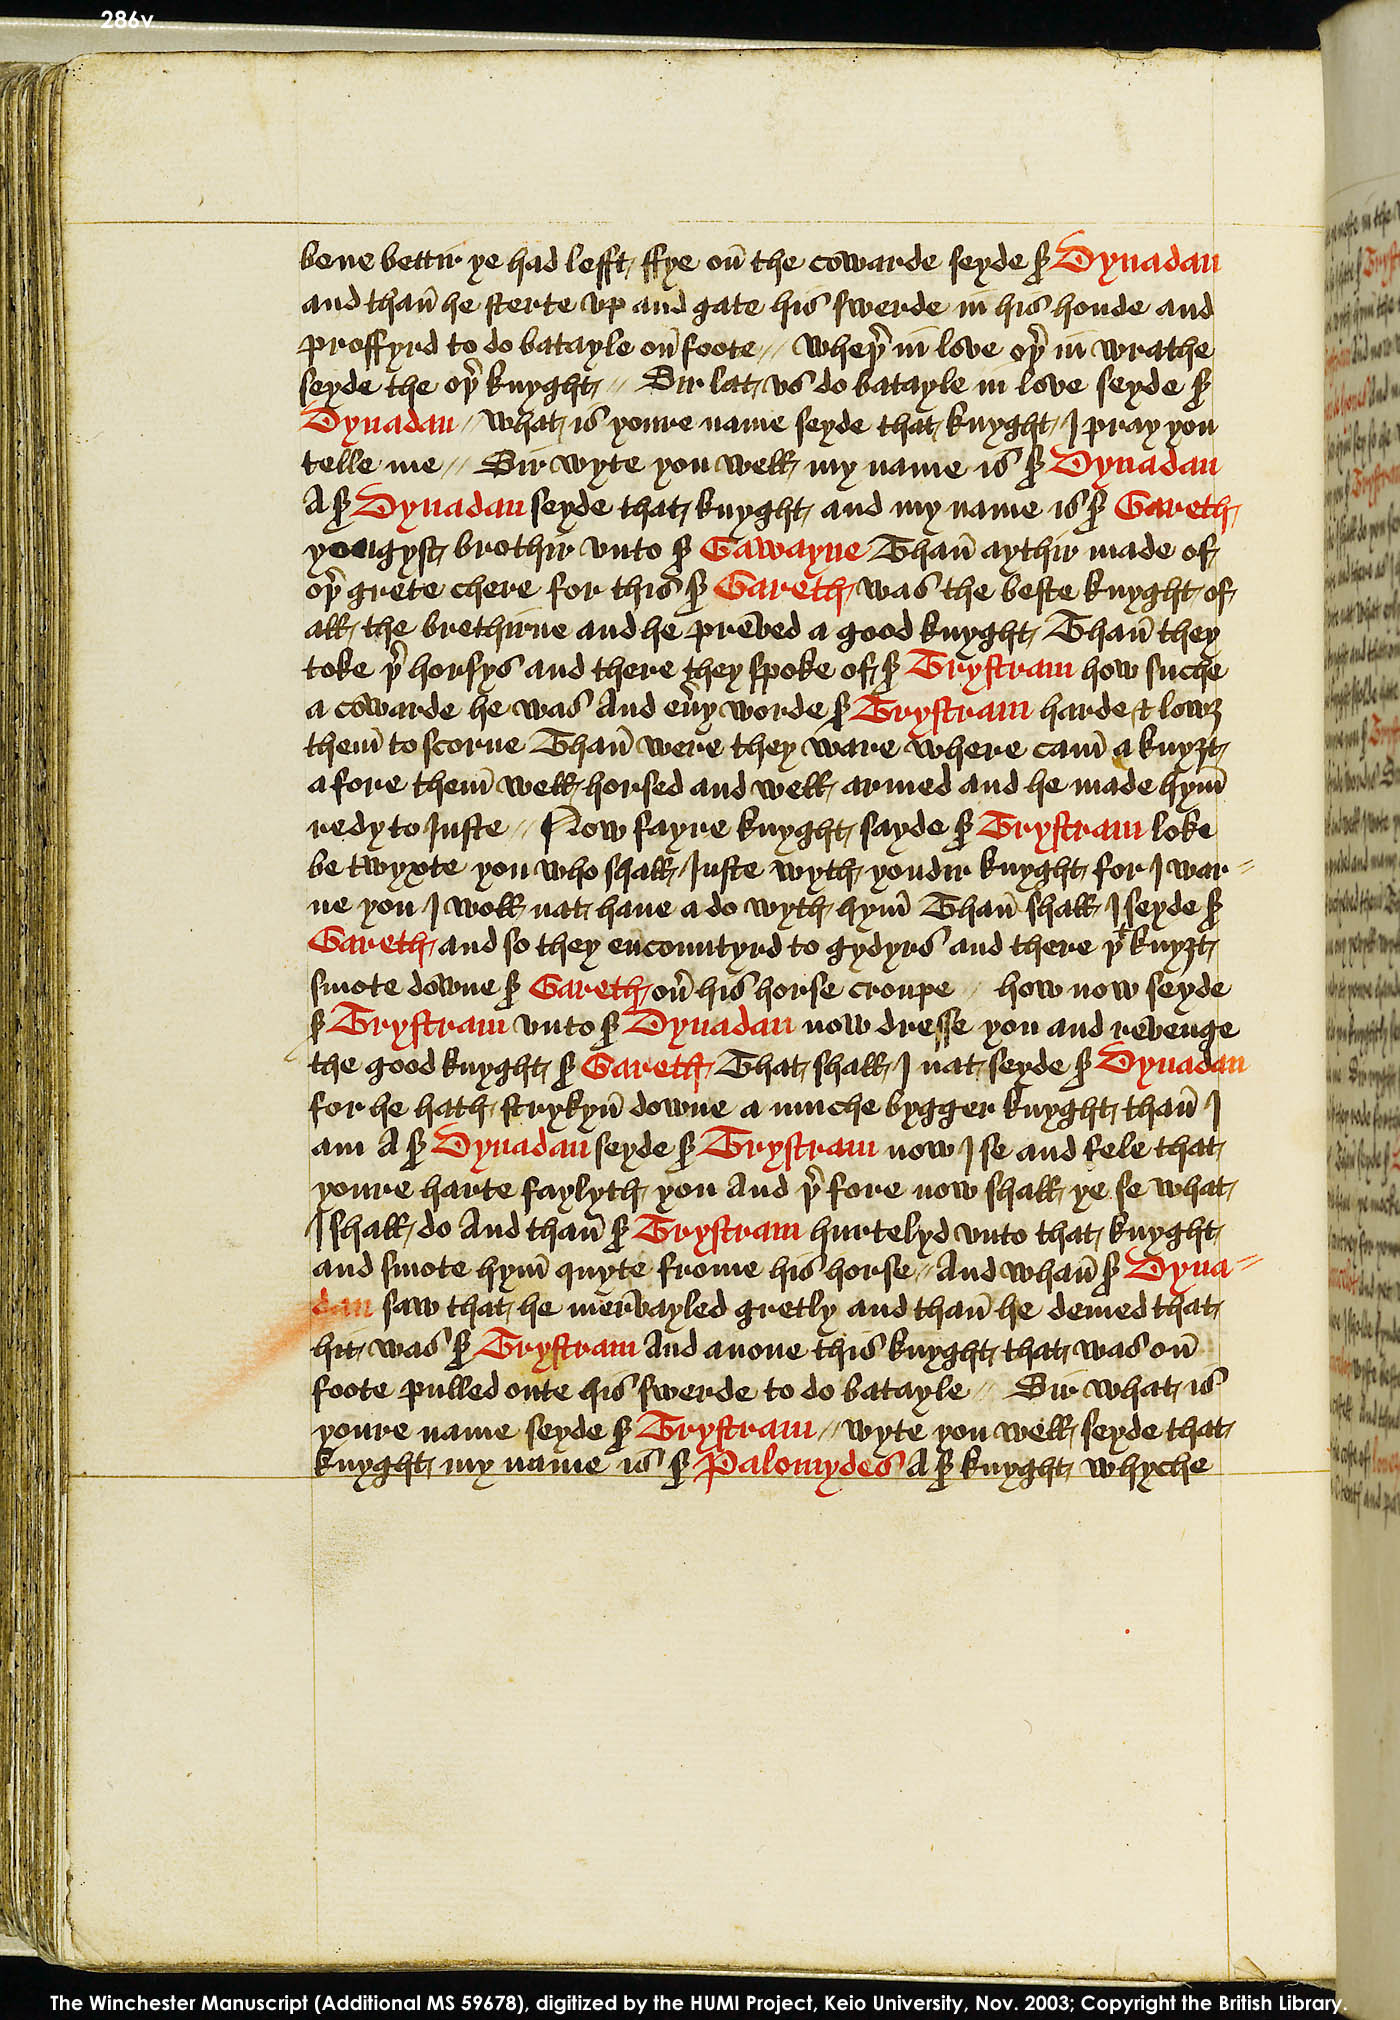 286v
bene bettir ye had lefft ffye oñ the cowarde seyde sᵱ Dynadan
and thañ he sterte vp and gate his swerde in his honde and
proffyrd to do batayle oñ foote // wheþ̉ in love oþ̉ in wrathe
seyde the oþ̉ knyght // Sir lat vs do batayle in love seyde sᵱ
Dynadan // what is youre name seyde that knyght I pray you
telle me // Sir wyte you well my name is sᵱ Dynadan
A sᵱ Dynadan seyde that knyght and my name is sᵱ Gareth
yongyst brothir vnto sᵱ Gawayne Thañ aythir made of
oþ̉ grete chere for this sᵱ Gareth was the beste knyght of
all the brethirne and he preved a good knyght Thañ they
toke þ̉ horsys and there they spoke of sᵱ Trystram how suche
a cowarde he was And eu̓y worde sᵱ Trystram harde & lowȝ
them̃ to scorne Thañ were they ware where cam̃ a knyȝt
a fore them̃ well horsed and well armed and he made hym̃
redy to Juste // Now fayre knyght sayde sᵱ Trystram loke
be twyxte you who shall Juste wyth yondir knyght for I war=
ne you I woll nat haue a do wyth hym̃ Thañ shall I seyde sᵱ
Gareth and so they encountyrd to gydyrs and there þᵗ knyȝt
smote downe sᵱ Gareth ou̓ his horse croupe // how now seyde
sᵱ Trystram vnto sᵱ Dynadan now dresse you and revenge
the good knyght sᵱ Gareth That shall I nat seyde sᵱ Dynadan
for he hath strykyñ downe a muche bygger knyght thañ I
am A sᵱ Dynadan seyde sᵱ Trystram now I se and fele that
youre harte faylyth you And þ̉ fore now shall ye se what
I shall do And thañ sᵱ Trystram hurtelyd vnto that knyght
and smote hym̃ quyte frome his horse // And whañ sᵱ Dyna=
dan saw that he mervayled gretly and thañ he demed that
hit was sᵱ Trystram And anone this knyght that was oñ
foote pulled oute his swerde to do batayle // Sir what is
youre name seyde sᵱ Trystram // wyte you well seyde that
knyght my name is sᵱ Palomydes A sᵱ knyght whyche
The Winchester Manuscript (Additional MS 59678), digitized by the HUMI Project, Keio University, Nov. 2003; Copyright the British Library.